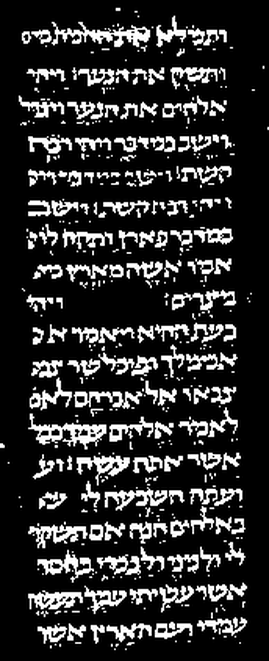 ותמלא את החמת מים
ותשק את הנער: ויהי
אלהים את הנער ויגדל
וישב במדבר ויהי רבה
קשת: וישב במדבר
ויהי רבה קשת: וישב
במדבר פארן ותקח לו
אמו אשה מארץ
מצרים: ויהי
בעת ההוא ויאמר א
אבימלך ופיכל שר צב
צבאו אל אברהם לאמ
לאמר אלהים עמך בכל
אשר אתה עשה: וע
ועתה השבעה לי
באלהים הנה אם תשקר
לי ולניני ולנכדי כחסד
אשר עשיתי עמך תעשה
עמדי ועם הארץ אשר